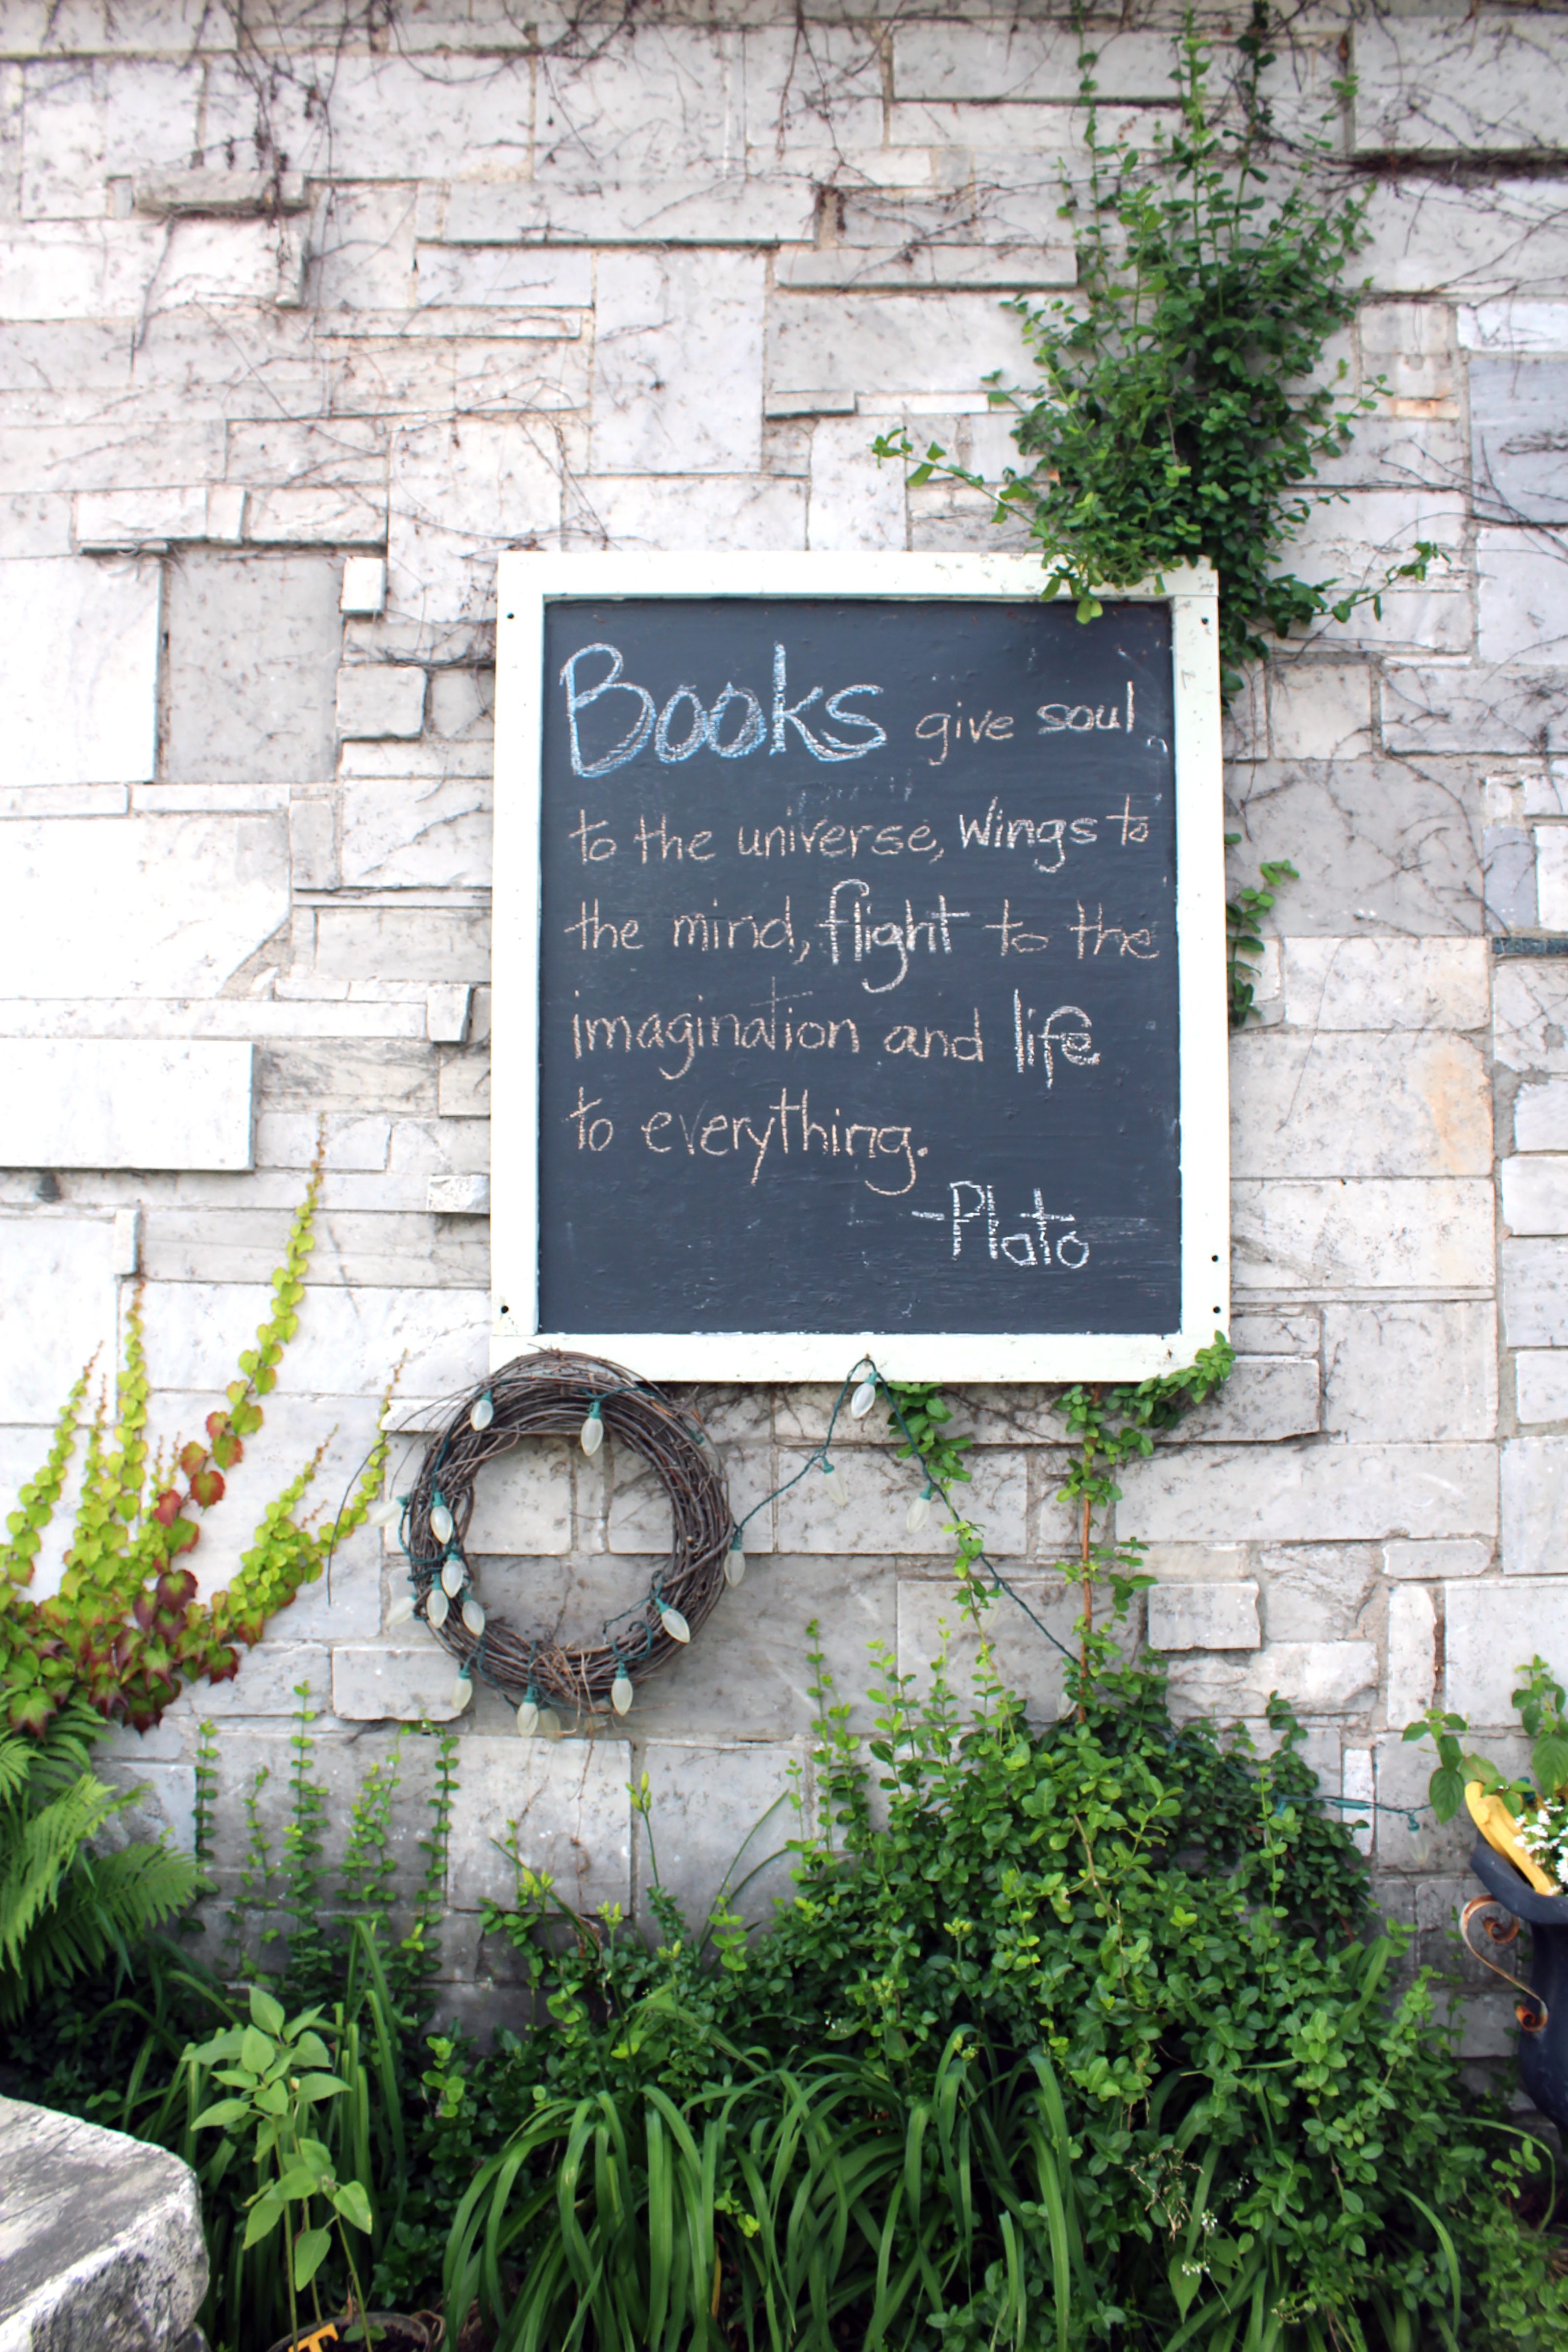 Books give soul
to the universe, wings to
the mind, flight to the
imagination and life
to everything.
-Plato